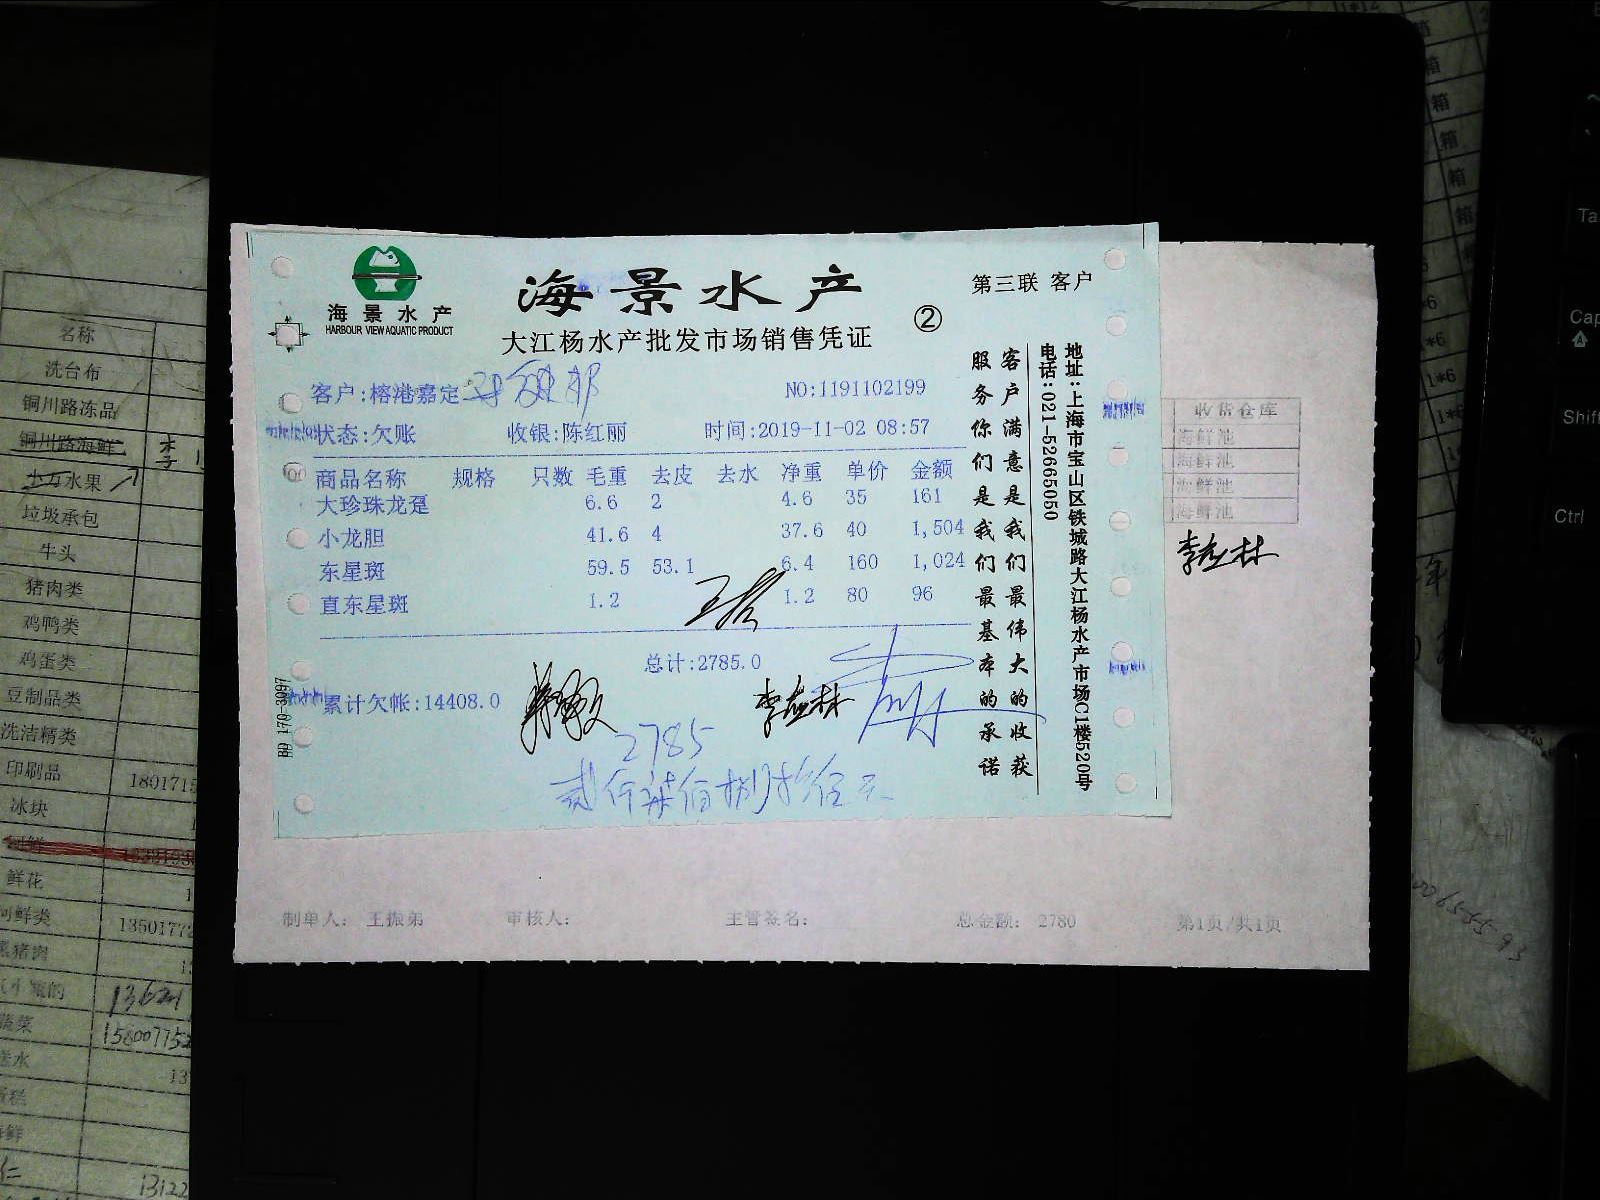 海景水产
HARBOUR VIEW AQUATIC PRODUCT
海景水产
大江杨水产批发市场销售凭证
②
第三联 客户
客户:榕港嘉定
NO:1191102199
状态:欠账 收银:陈红丽 时间:2019-11-02 08:57
商品名称 规格 只数 毛重 去皮 去水 净重 单价 金额
大珍珠龙趸 6.6 2 4.6 35 161
小龙胆 41.6 4 37.6 40 1,504
东星斑 59.5 53.1 6.4 160 1,024
直东星斑 1.2 1.2 80 96
总计:2785.0
累计欠帐:14408.0
李应林
2785
贰仟柒佰捌拾伍元
BD 170-3097
客户满意是我们最伟大的收获
服务你们是我们最基本的承诺
地址:上海市宝山区铁城路大江杨水产市场C1楼520号
电话:021-52665050
收货仓库
海鲜池
海鲜池
海鲜池
海鲜池
李应林
制单人: 王振弟 审核人: 主管签名: 总金额: 2780 第1页/共1页
名称
洗台布
铜川路冻品
铜川路海鲜 李
水果
垃圾承包
牛头
猪肉类
鸡鸭类
鸡蛋类
豆制品类
洗洁精类
印刷品 1801715
冰块
鲜花
河鲜类 1350177
黑猪肉
蔬菜 15800775
送水 13
13122
箱
箱
箱
箱
箱
1*6
1*6
Cap
Shift
Ctrl